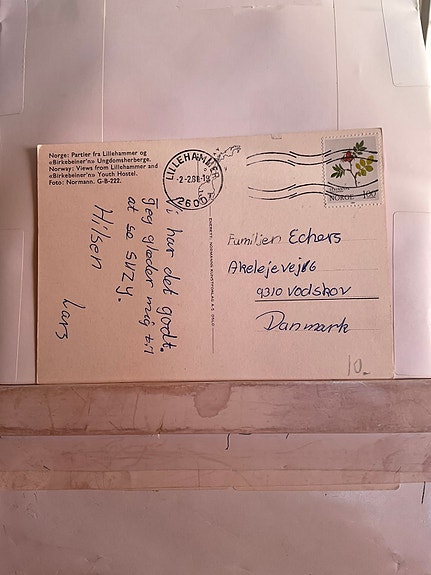 Norge: Partier fra Lillehammer og
«Birkebeiner'n» Ungdomsherberge.
Norway: Views from Lillehammer and
«Birkebeiner'n» Youth Hostel.
Foto: Normann. G-B-222.
LILLEHAMMER
-2-2.81-18
2600
NORGE 100
Vi har det godt.
Jeg glæder mig til
at se SUZY.
Hilsen
Lars
Familien Echers
Akelejevej 86
9310 Vodskov
Danmark
10.-